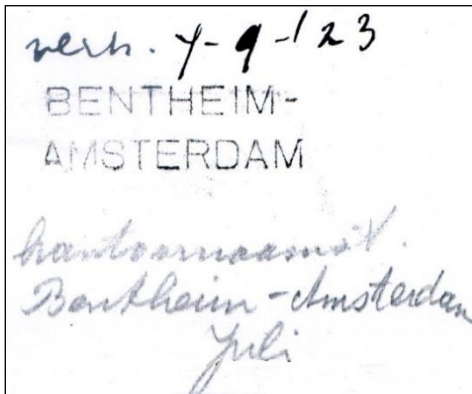 verh. 7-9-'23
BENTHEIM-
AMSTERDAM
kantoornaamst.
Bentheim-Amsterdam
Juli